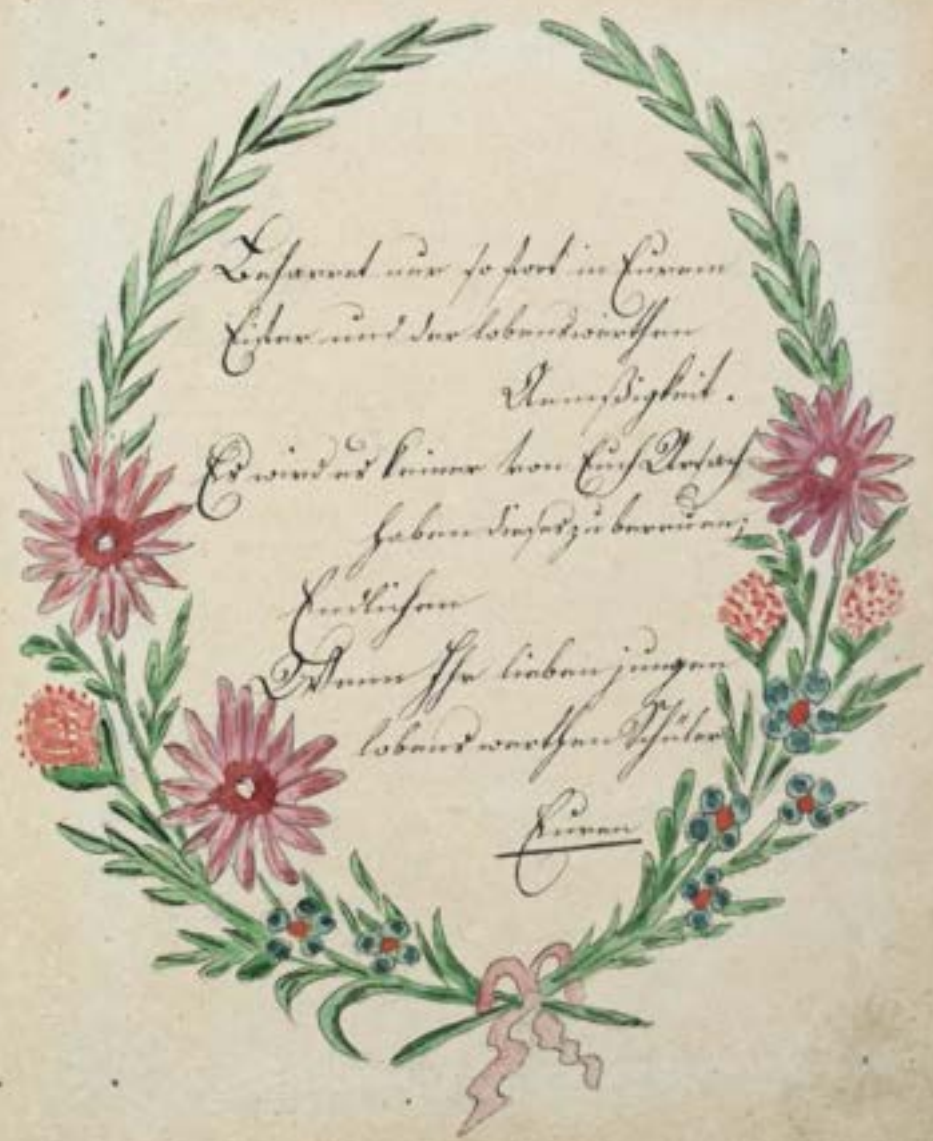 Beharret nur so fort in Eurem
Eifer und der lobenswerthen
Aemsigkeit.
Es wird es keiner von Euch Ursach
haben dieses zu bereuen;
Endlichen
Wenn Ihr lieben jungen
lobenswerthen Schüler
Euren